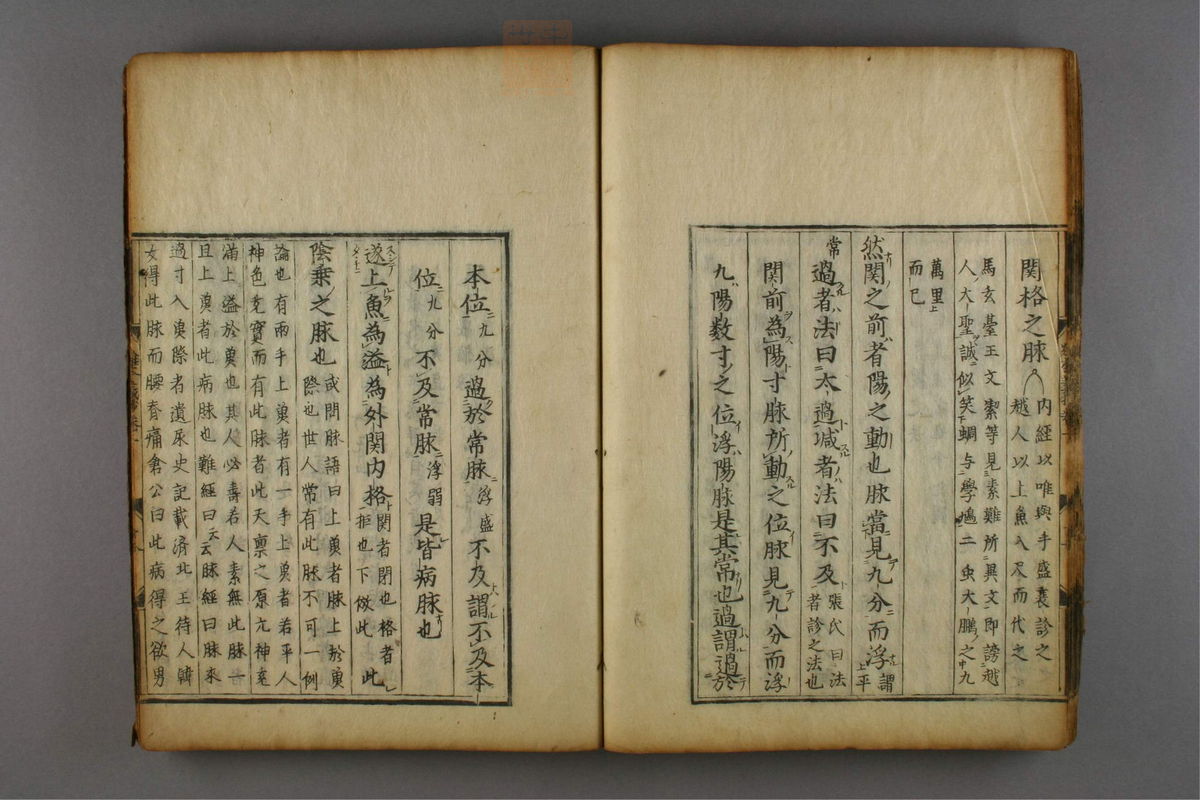 関格之脉
内經以唯與手盛衰診之
越人以上魚入尺而代之
馬玄臺王文潔等見素難所異文即謗越
人大聖誠似笑蜩与學鳩二虫大鵬之九
萬里上
而已
然関之前者陽之動也脉當見九分而浮
謂
平
常
過者法曰太過減者法曰不及
張氏曰法
者診之法也
関前為陽寸脉所動之位脉見九分而浮
九陽数寸之位浮陽脉是其常也過謂過於
本位
九分
過於常脉
浮盛
不及謂不及本
位
九分
不及常脉
浮弱
是皆病脉也
遂上魚為溢為外関内格
関者閉也格者
拒也下倣此
此
陰乗之脉也
或問脉語曰上魚者脉上於魚
際也世人常有此脉不可一例
論也有兩手上魚者有一手上魚者若平人
神色充實而有此脉者此天禀之原亢神充
滿上溢於魚也其人必壽若人素無此脉一
且上魚者此病脉也難經曰云云脉經曰脉來
過寸入魚際者遺尿史記載済北王待人韓
女得此脉而腰脊痛倉公曰此病得之欲男